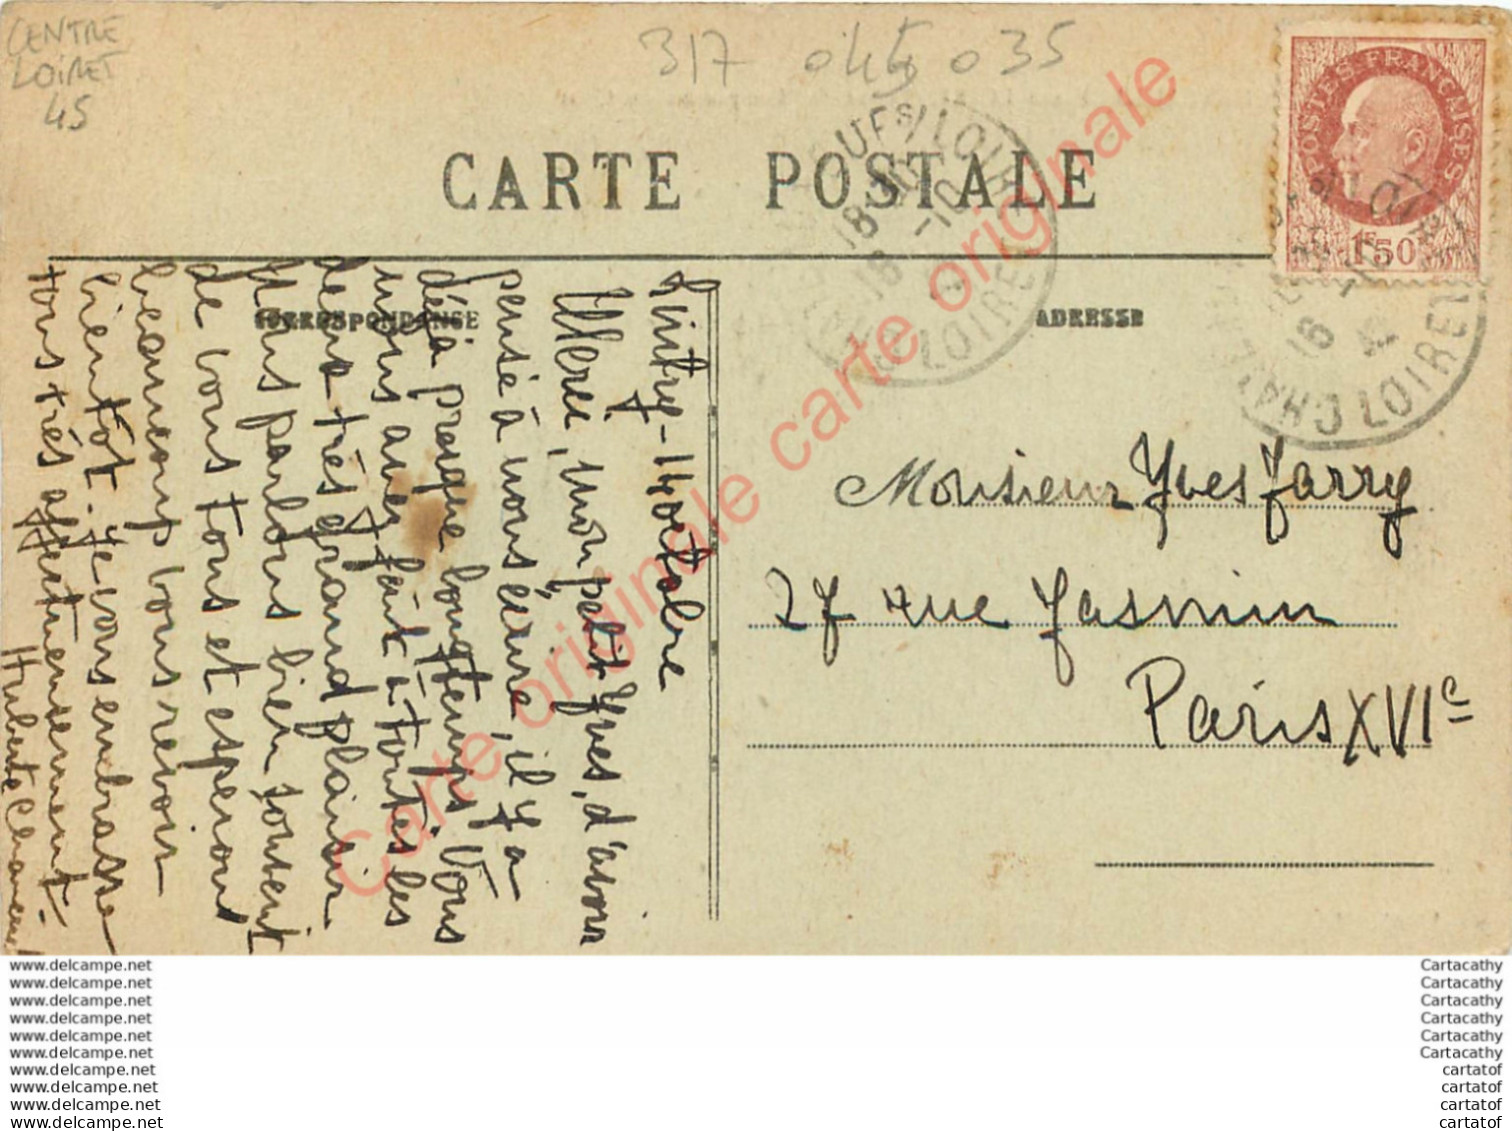 CENTRE
LOIRET
45
317 045 035
CARTE POSTALE
POSTES FRANÇAISES
1F50
18 30
16 -10
LOIRET
CHAT
LOIRET
CORRESPONDANCE
ADRESSE
Carte originale carte originale
14 octobre
Merci, mon petit Yves, d'avoir
pensé à nous écrire, il y a
déjà presque longtemps. Vous
nous avez fait à toutes les
deux très grand plaisir
Nous parlons bien souvent
de vous tous et espérons
beaucoup vous revoir
bientôt. Je vous embrasse
tous très affectueusement.
Huberte
Monsieur Yves Jarry
27 rue Jasmin
Paris XVIe
www.delcampe.net
www.delcampe.net
www.delcampe.net
www.delcampe.net
www.delcampe.net
www.delcampe.net
www.delcampe.net
www.delcampe.net
www.delcampe.net
www.delcampe.net
Cartacathy
Cartacathy
Cartacathy
Cartacathy
Cartacathy
Cartacathy
cartatof
cartatof
cartatof
cartatof